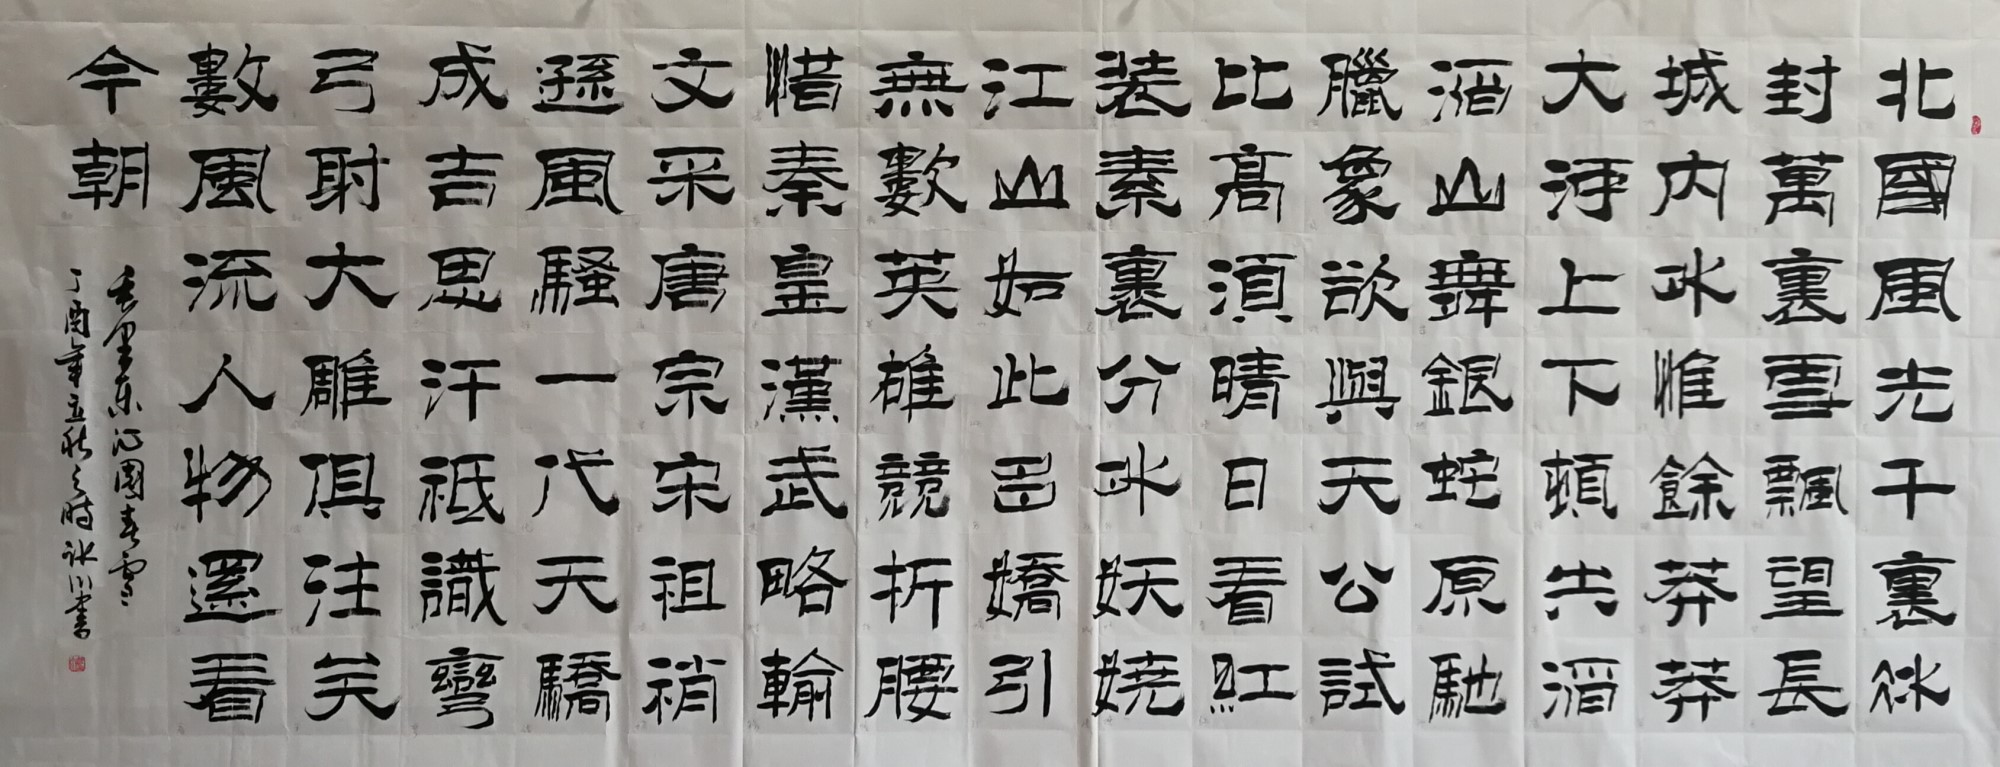 北國風光千裏冰
封萬裏雪飄望長
城内外惟餘莽莽
大河上下頓失滔
滔山舞銀蛇原馳
臘象欲與天公試
比高須晴日看紅
装素裹分外妖娆
江山如此多嬌引
無數英雄競折腰
惜秦皇漢武略輸
文采唐宗宋祖稍
遜風騷一代天驕
成吉思汗祗識彎
弓射大雕俱往矣
數風流人物還看
今朝
毛澤东沁園春雪
丁酉年立秋之時川書